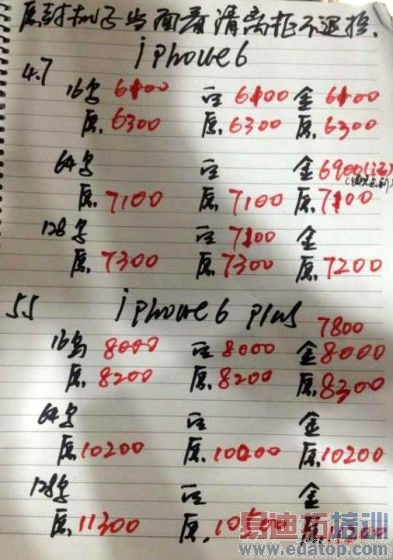 原封机子当面看清离柜不退换.
iphone6
4.7 16G 6400 白 6400 金 6400
原. 6300 原. 6300 原. 6300
64G 白 金 6900
原. 7100 原. 7100 原. 7400
128G 白 7100 金
原. 7300 原. 7300 原. 7200
5.5 iphone6 plus 7800
16G 8000 白 8000 金 8000
原. 8200 原. 8200 原. 8300
64G 白 金
原. 10200 原. 10000 原. 10200
128G 白 金
原. 11300 原. 原.
易迪拓培训
www.edatop.com